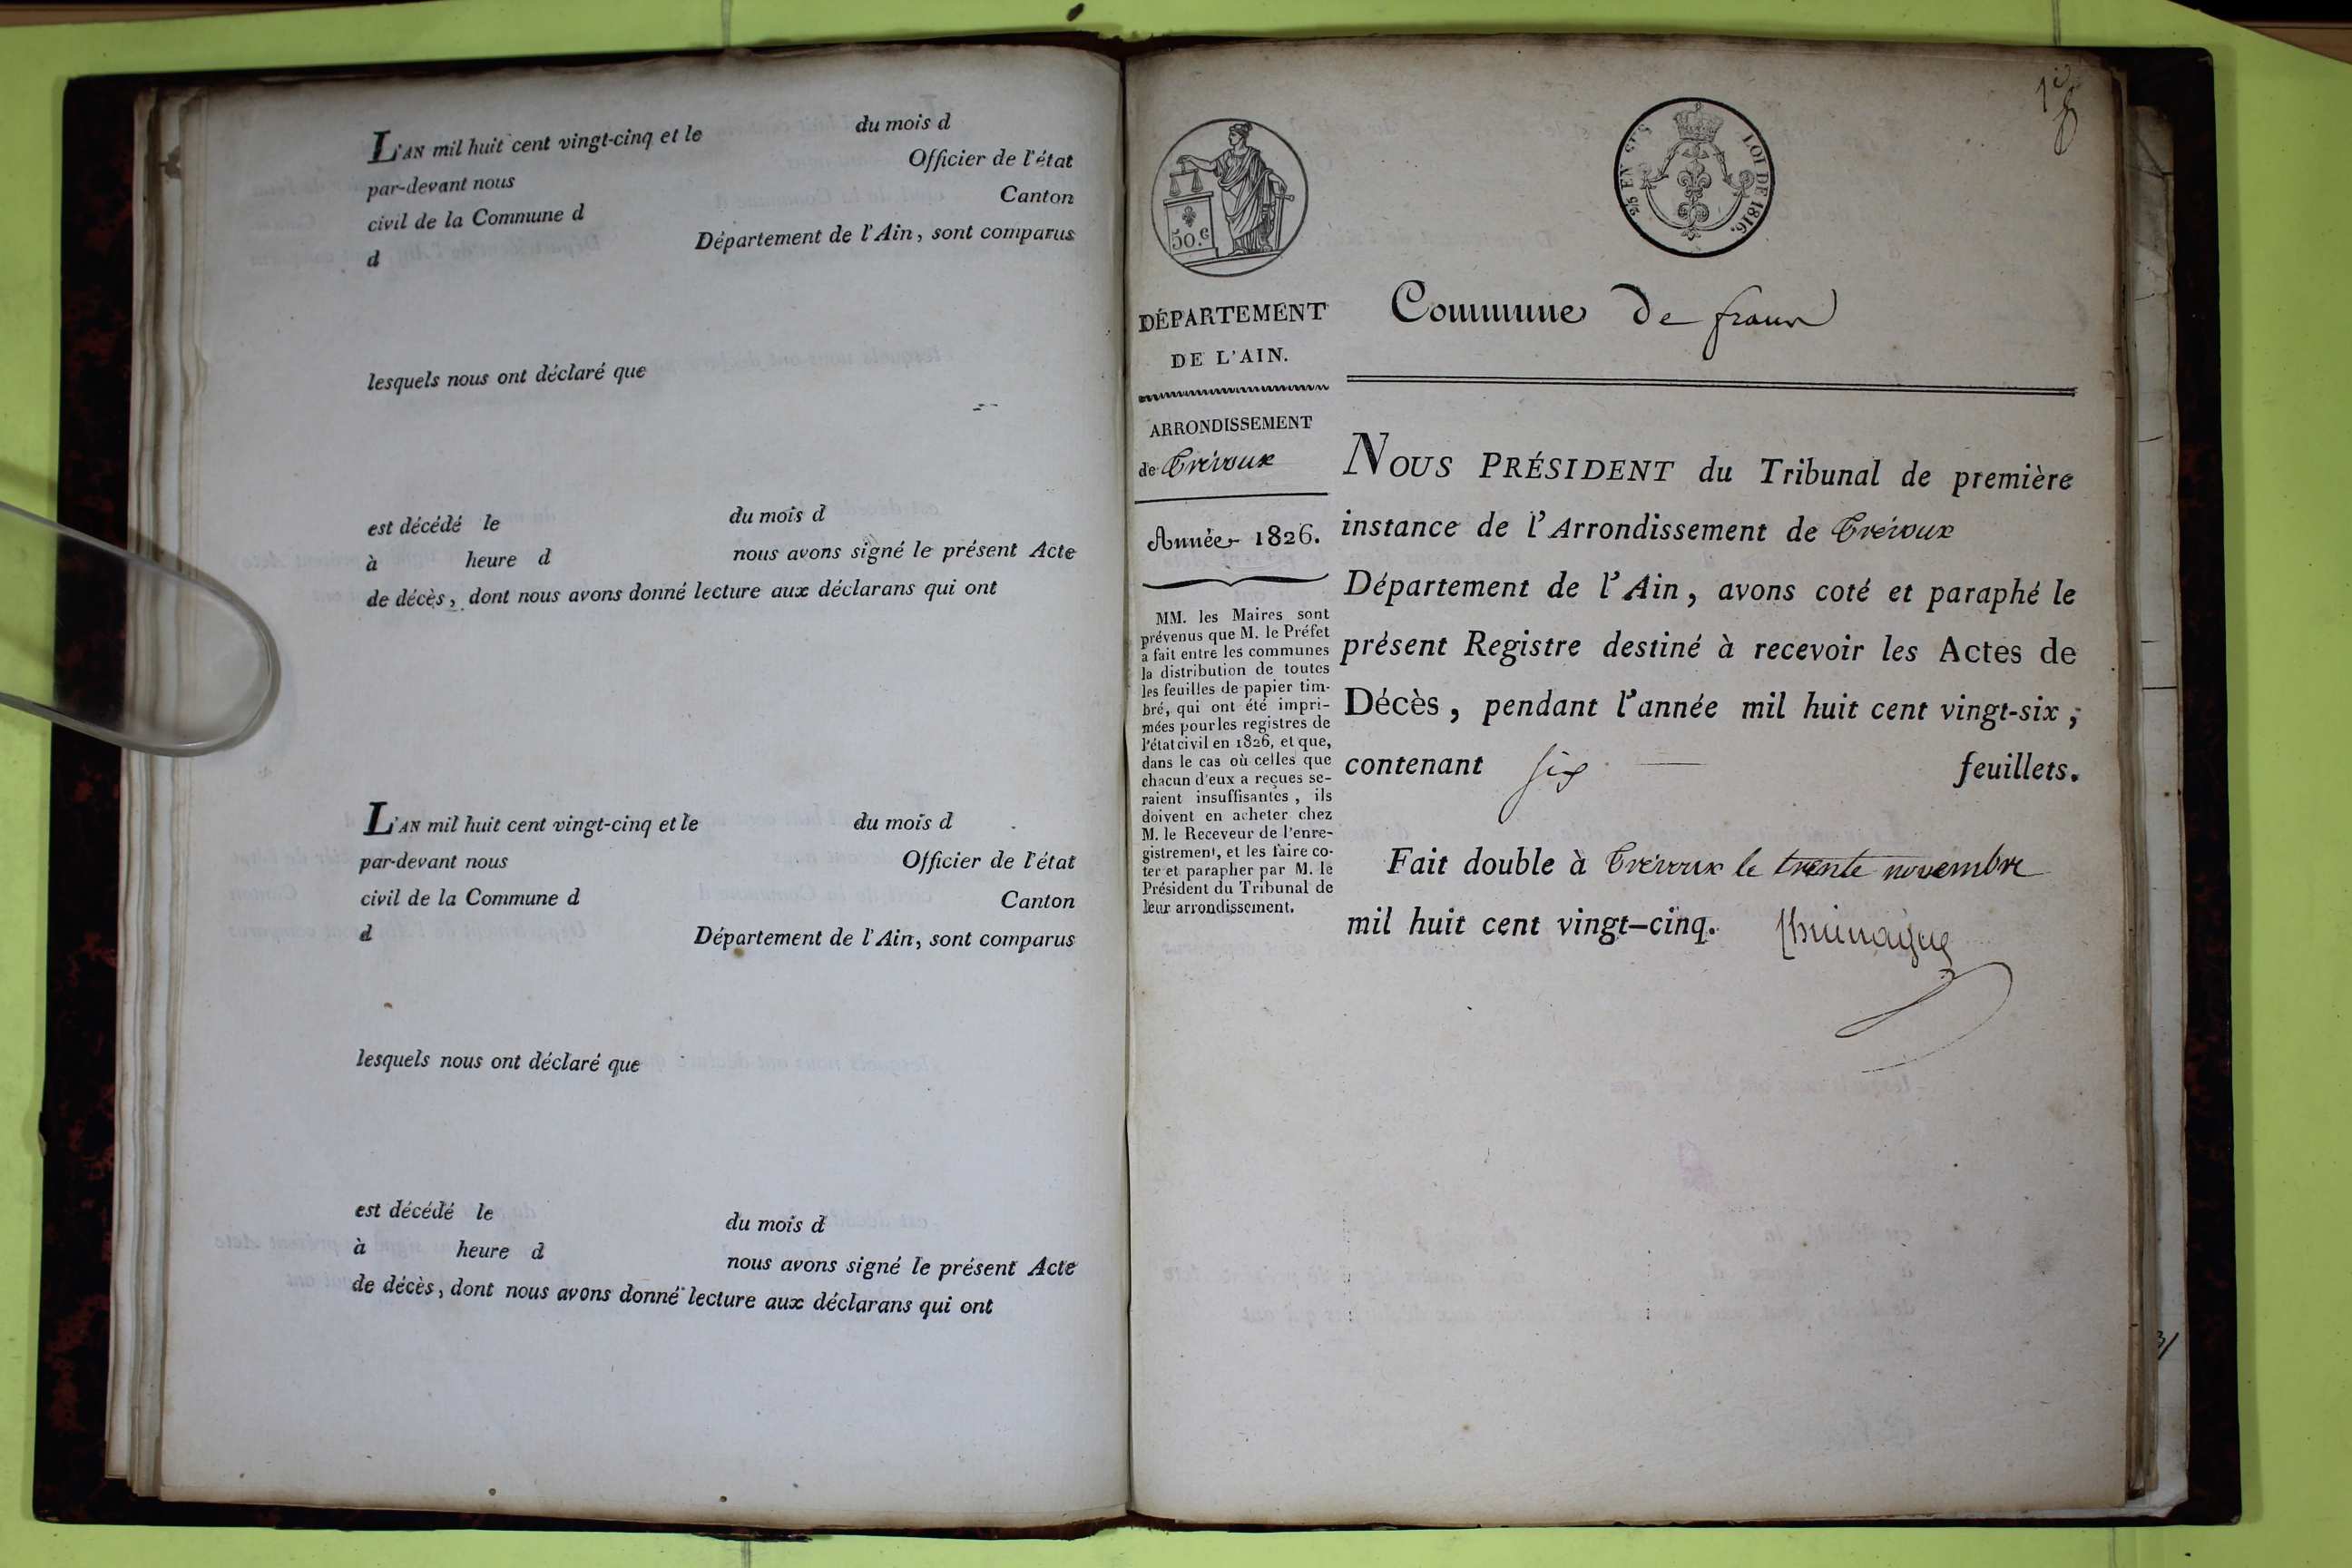 L'AN mil huit cent vingt-cinq et le du mois d
par-devant nous Officier de l'état
civil de la Commune d Canton
d Département de l'Ain, sont comparus
lesquels nous ont déclaré que
est décédé le du mois d
à heure d nous avons signé le présent Acte
de décès, dont nous avons donné lecture aux déclarans qui ont
L'AN mil huit cent vingt-cinq et le du mois d
par-devant nous Officier de l'état
civil de la Commune d Canton
d Département de l'Ain, sont comparus
lesquels nous ont déclaré que
est décédé le du mois d
à heure d nous avons signé le présent Acte
de décès, dont nous avons donné lecture aux déclarans qui ont
50.c
EN SUS
LOI DE 1816.
DÉPARTEMENT
DE L'AIN.
ARRONDISSEMENT
de Trévoux
Année 1826.
MM. les Maires sont
prévenus que M. le Préfet
a fait entre les communes
la distribution de toutes
les feuilles de papier tim-
bré, qui ont été impri-
mées pour les registres de
l'état civil en 1826, et que,
dans le cas où celles que
chacun d'eux a reçues se-
raient insuffisantes, ils
doivent en acheter chez
M. le Receveur de l'enre-
gistrement, et les faire co-
ter et parapher par M. le
Président du Tribunal de
leur arrondissement.
Commune de frans
NOUS PRÉSIDENT du Tribunal de première
instance de l'Arrondissement de Trévoux
Département de l'Ain, avons coté et paraphé le
présent Registre destiné à recevoir les Actes de
Décès, pendant l'année mil huit cent vingt-six,
contenant six feuillets.
Fait double à Trévoux le trente novembre
mil huit cent vingt-cinq.